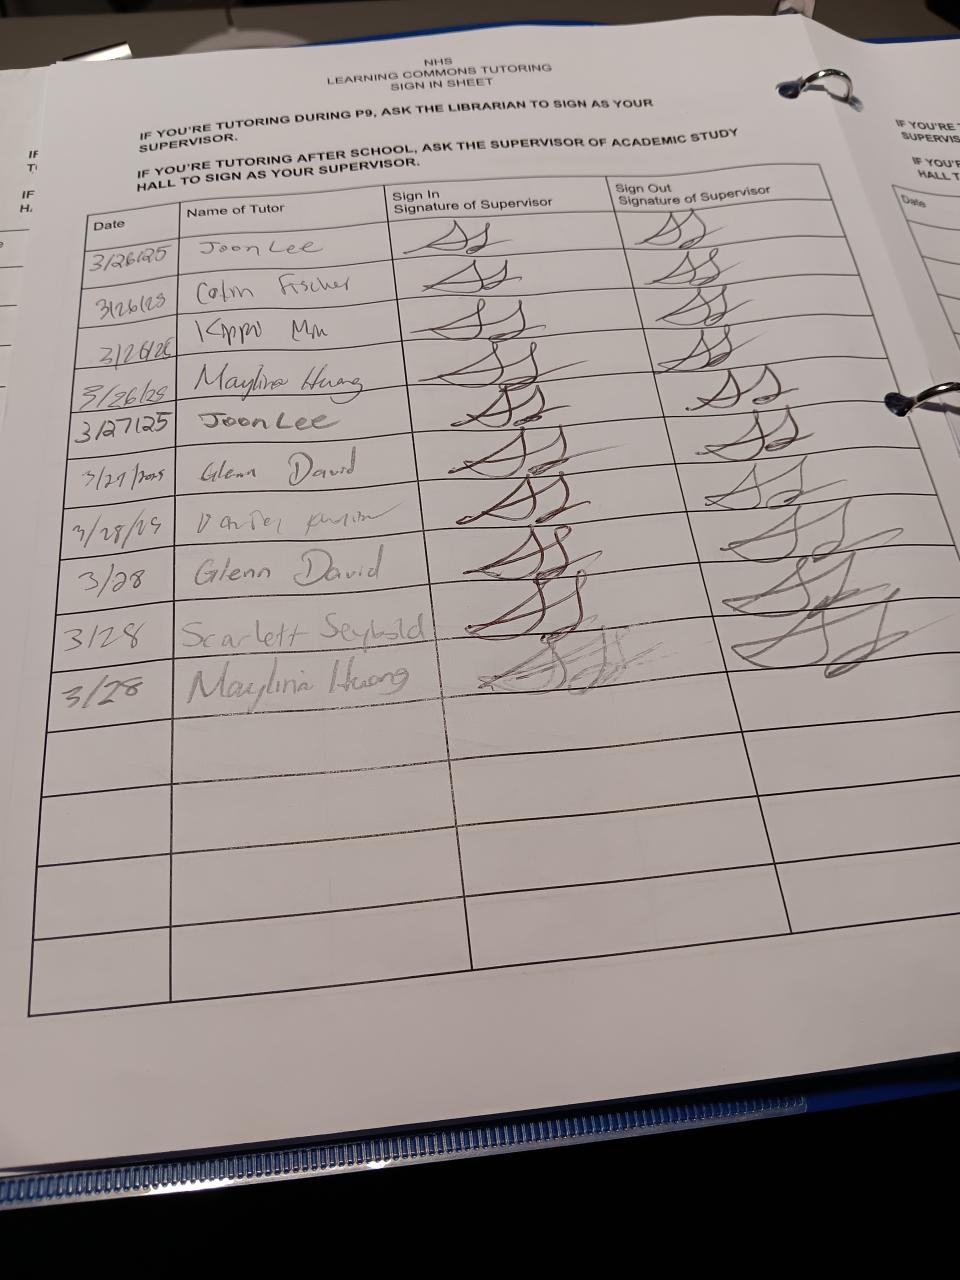 NHS
LEARNING COMMONS TUTORING
SIGN IN SHEET
IF YOU'RE TUTORING DURING P9, ASK THE LIBRARIAN TO SIGN AS YOUR
SUPERVISOR.
IF YOU'RE TUTORING AFTER SCHOOL, ASK THE SUPERVISOR OF ACADEMIC STUDY
HALL TO SIGN AS YOUR SUPERVISOR.
Date Name of Tutor Sign In Signature of Supervisor Sign Out Signature of Supervisor
3/26/25 Joon Lee
3/26/25 Colin Fischer
3/26/25
3/26/25 Maylina Huang
3/27/25 Joon Lee
3/27/2025 Glenn David
3/28/25
3/28 Glenn David
3/28 Scarlett Seybold
3/28 Maylina Huang
IF YOU'RE
SUPERVIS
IF YOU'
HALL T
Date